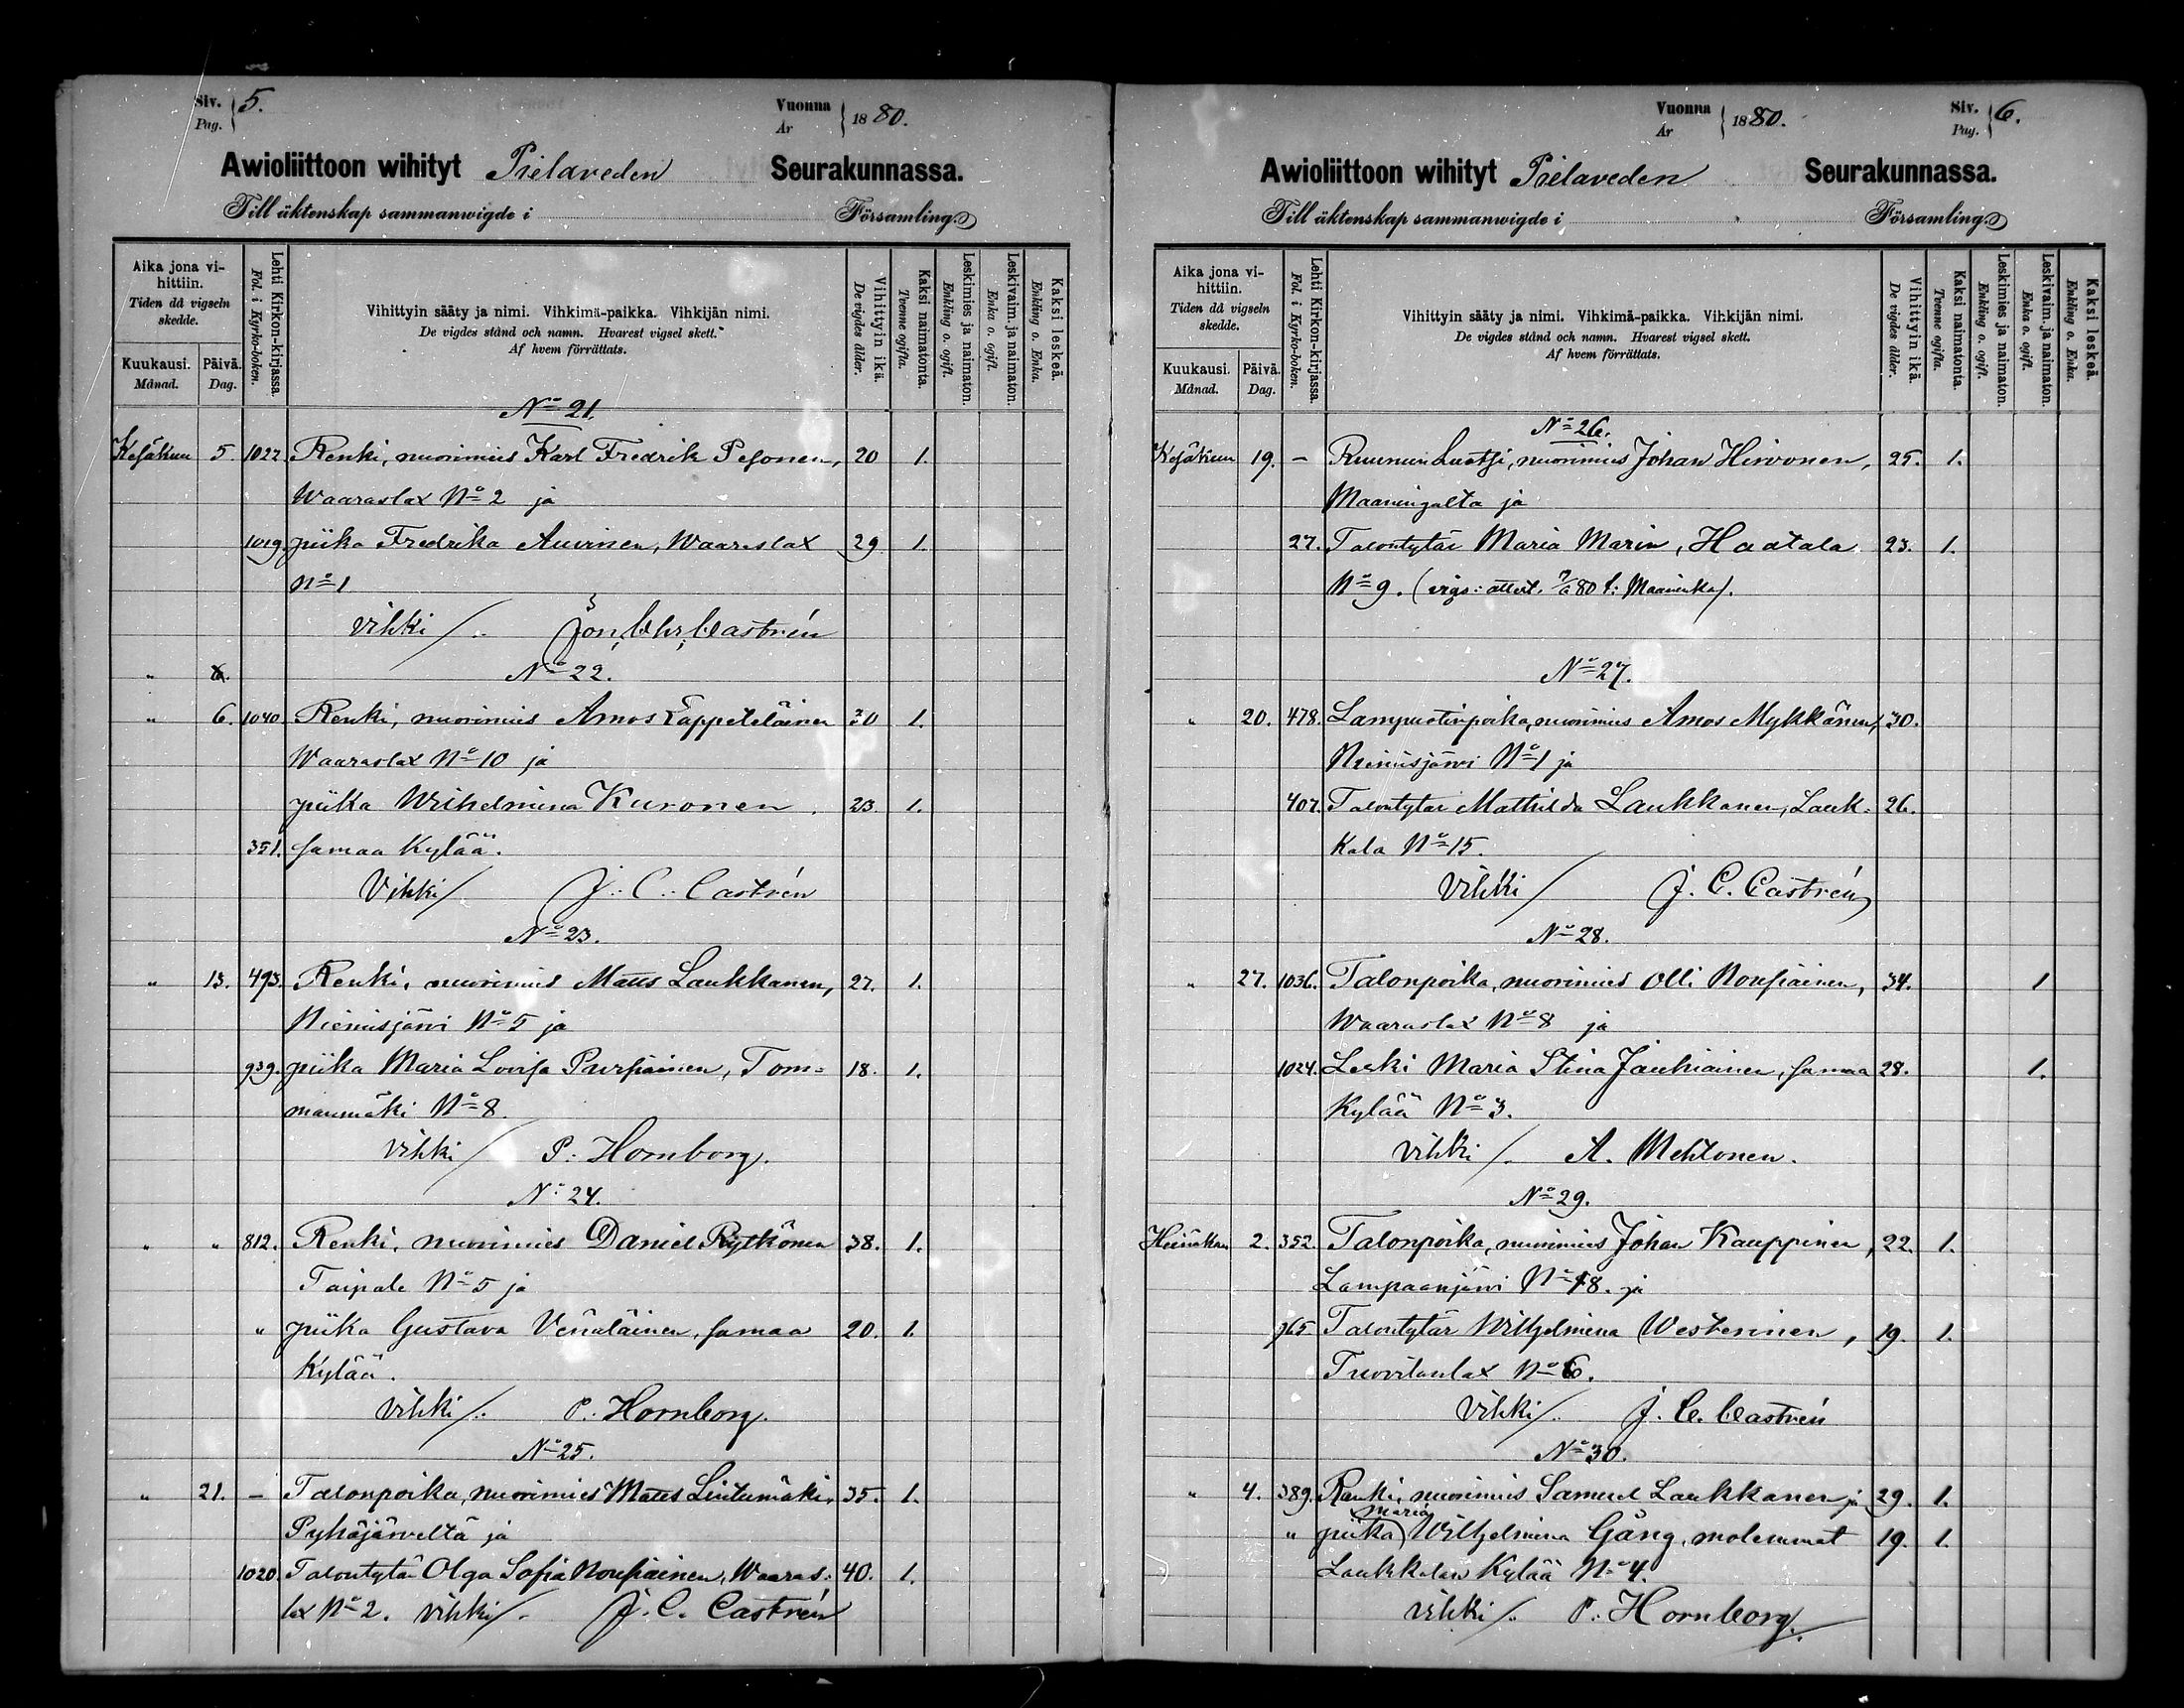 Siv. Pag. 5.
Vuonna År 1880.
Awioliittoon wihityt Pielaveden Seurakunnassa.
Till äktenskap sammanwigde i Församling.
Aika jona vihittiin. Tiden då vigseln skedde.
Kuukausi. Månad.
Päivä. Dag.
Lehti Kirkon-kirjassa. Fol. i Kyrko-boken.
Vihittyin sääty ja nimi. Vihkimä-paikka. Vihkijän nimi.
De vigdes stånd och namn. Hvarest vigsel skett.
Af hvem förrättats.
Vihittyin ikä. De vigdes ålder.
Kaksi naimatonta. Tvenne ogifta.
Leskimies ja naimaton. Enkling o. ogift.
Leskivaim. ja naimaton. Enka o. ogift.
Kaksi leskeä. Enkling o. Enka.
No 21.
Kesäkuu 5. 1022. Renki, nuorimies Karl Fredrik Pesonen, 20 1.
Waaraslax No 2 ja
1019. piika Fredrika Auvinen, Waaraslax 29 1.
No 1
Vihki /. Jon. Chr. Castrén
No 22.
" 6. 1040. Renki, nuorimies Amos Lappeteläinen 30 1.
Waaraslax No 10 ja
piika Wilhelmina Kuronen. 23. 1.
351. samaa Kylää.
Vihki / J. C. Castrén
No 23.
" 13. 493. Renki, nuorimies Matts Laukkanen, 27. 1.
Niemisjärvi No 5 ja
939. piika Maria Lovisa Pursiainen, Tom- 18. 1.
manmäki No 8.
Vihki / P. Hornborg.
No 24.
" " 812. Renki, nuorimies Daniel Rytkönen 38. 1.
Taipale No 5 ja
" piika Gustava Venäläinen, samaa 20. 1.
Kylää.
Vihki /. P. Hornborg.
No 25.
" 21. – Talonpoika, nuorimies Matts Lintumäki, 35. 1.
Pyhäjärveltä ja
1020. Talontytär Olga Sofia Nousiainen, Waaras- 40. 1.
lax No 2. Vihki /. J. C. Castrén
Vuonna År 1880.
Siv. Pag. 6.
Awioliittoon wihityt Pielaveden Seurakunnassa.
Till äktenskap sammanwigde i Församling.
Aika jona vihittiin. Tiden då vigseln skedde.
Kuukausi. Månad.
Päivä. Dag.
Lehti Kirkon-kirjassa. Fol. i Kyrko-boken.
Vihittyin sääty ja nimi. Vihkimä-paikka. Vihkijän nimi.
De vigdes stånd och namn. Hvarest vigsel skett.
Af hvem förrättats.
Vihittyin ikä. De vigdes ålder.
Kaksi naimatonta. Tvenne ogifta.
Leskimies ja naimaton. Enkling o. ogift.
Leskivaim. ja naimaton. Enka o. ogift.
Kaksi leskeä. Enkling o. Enka.
No 26.
Kesäkuu 19. – Ruunun Luotsi, nuorimies Johan Hirvonen, 25. 1.
Maaningalta ja
27. Talontytär Maria Marin, Haatala 23. 1.
No 9. (vigs: attest. 80 f: Maaninka).
No 27.
" 20. 478. Lampuotinpoika, nuorimies Amos Mykkänen, 30.
Niemisjärvi No 1 ja
407. Talontytär Mathilda Laukkanen, Lauk- 26.
kala No 15.
Vihki / J. C. Castrén
No 28.
" 27. 1036. Talonpoika, nuorimies Olli Nousiainen, 34. 1
Waaraslax No 8 ja
1024. Leski Maria Stina Jauhiainen, samaa 28. 1.
Kylää No 3.
Vihki /. A. Mehtonen.
No 29.
Heinäkuu 2. 352. Talonpoika, nuorimies Johan Kauppinen, 22. 1.
Lampaanjärvi No 18. ja
965. Talontytär Wilhelmina Westerinen, 19. 1.
Tuovilanlax No 6.
Vihki /. J. C. Castrén
No 30.
" 4. 389. Renki, nuorimies Samuel Laukkanen ja 29. 1.
" piika Maria Wilhelmina Gång, molemmat 19. 1.
Laukkalan Kylää No 4.
Vihki /. P. Hornborg.